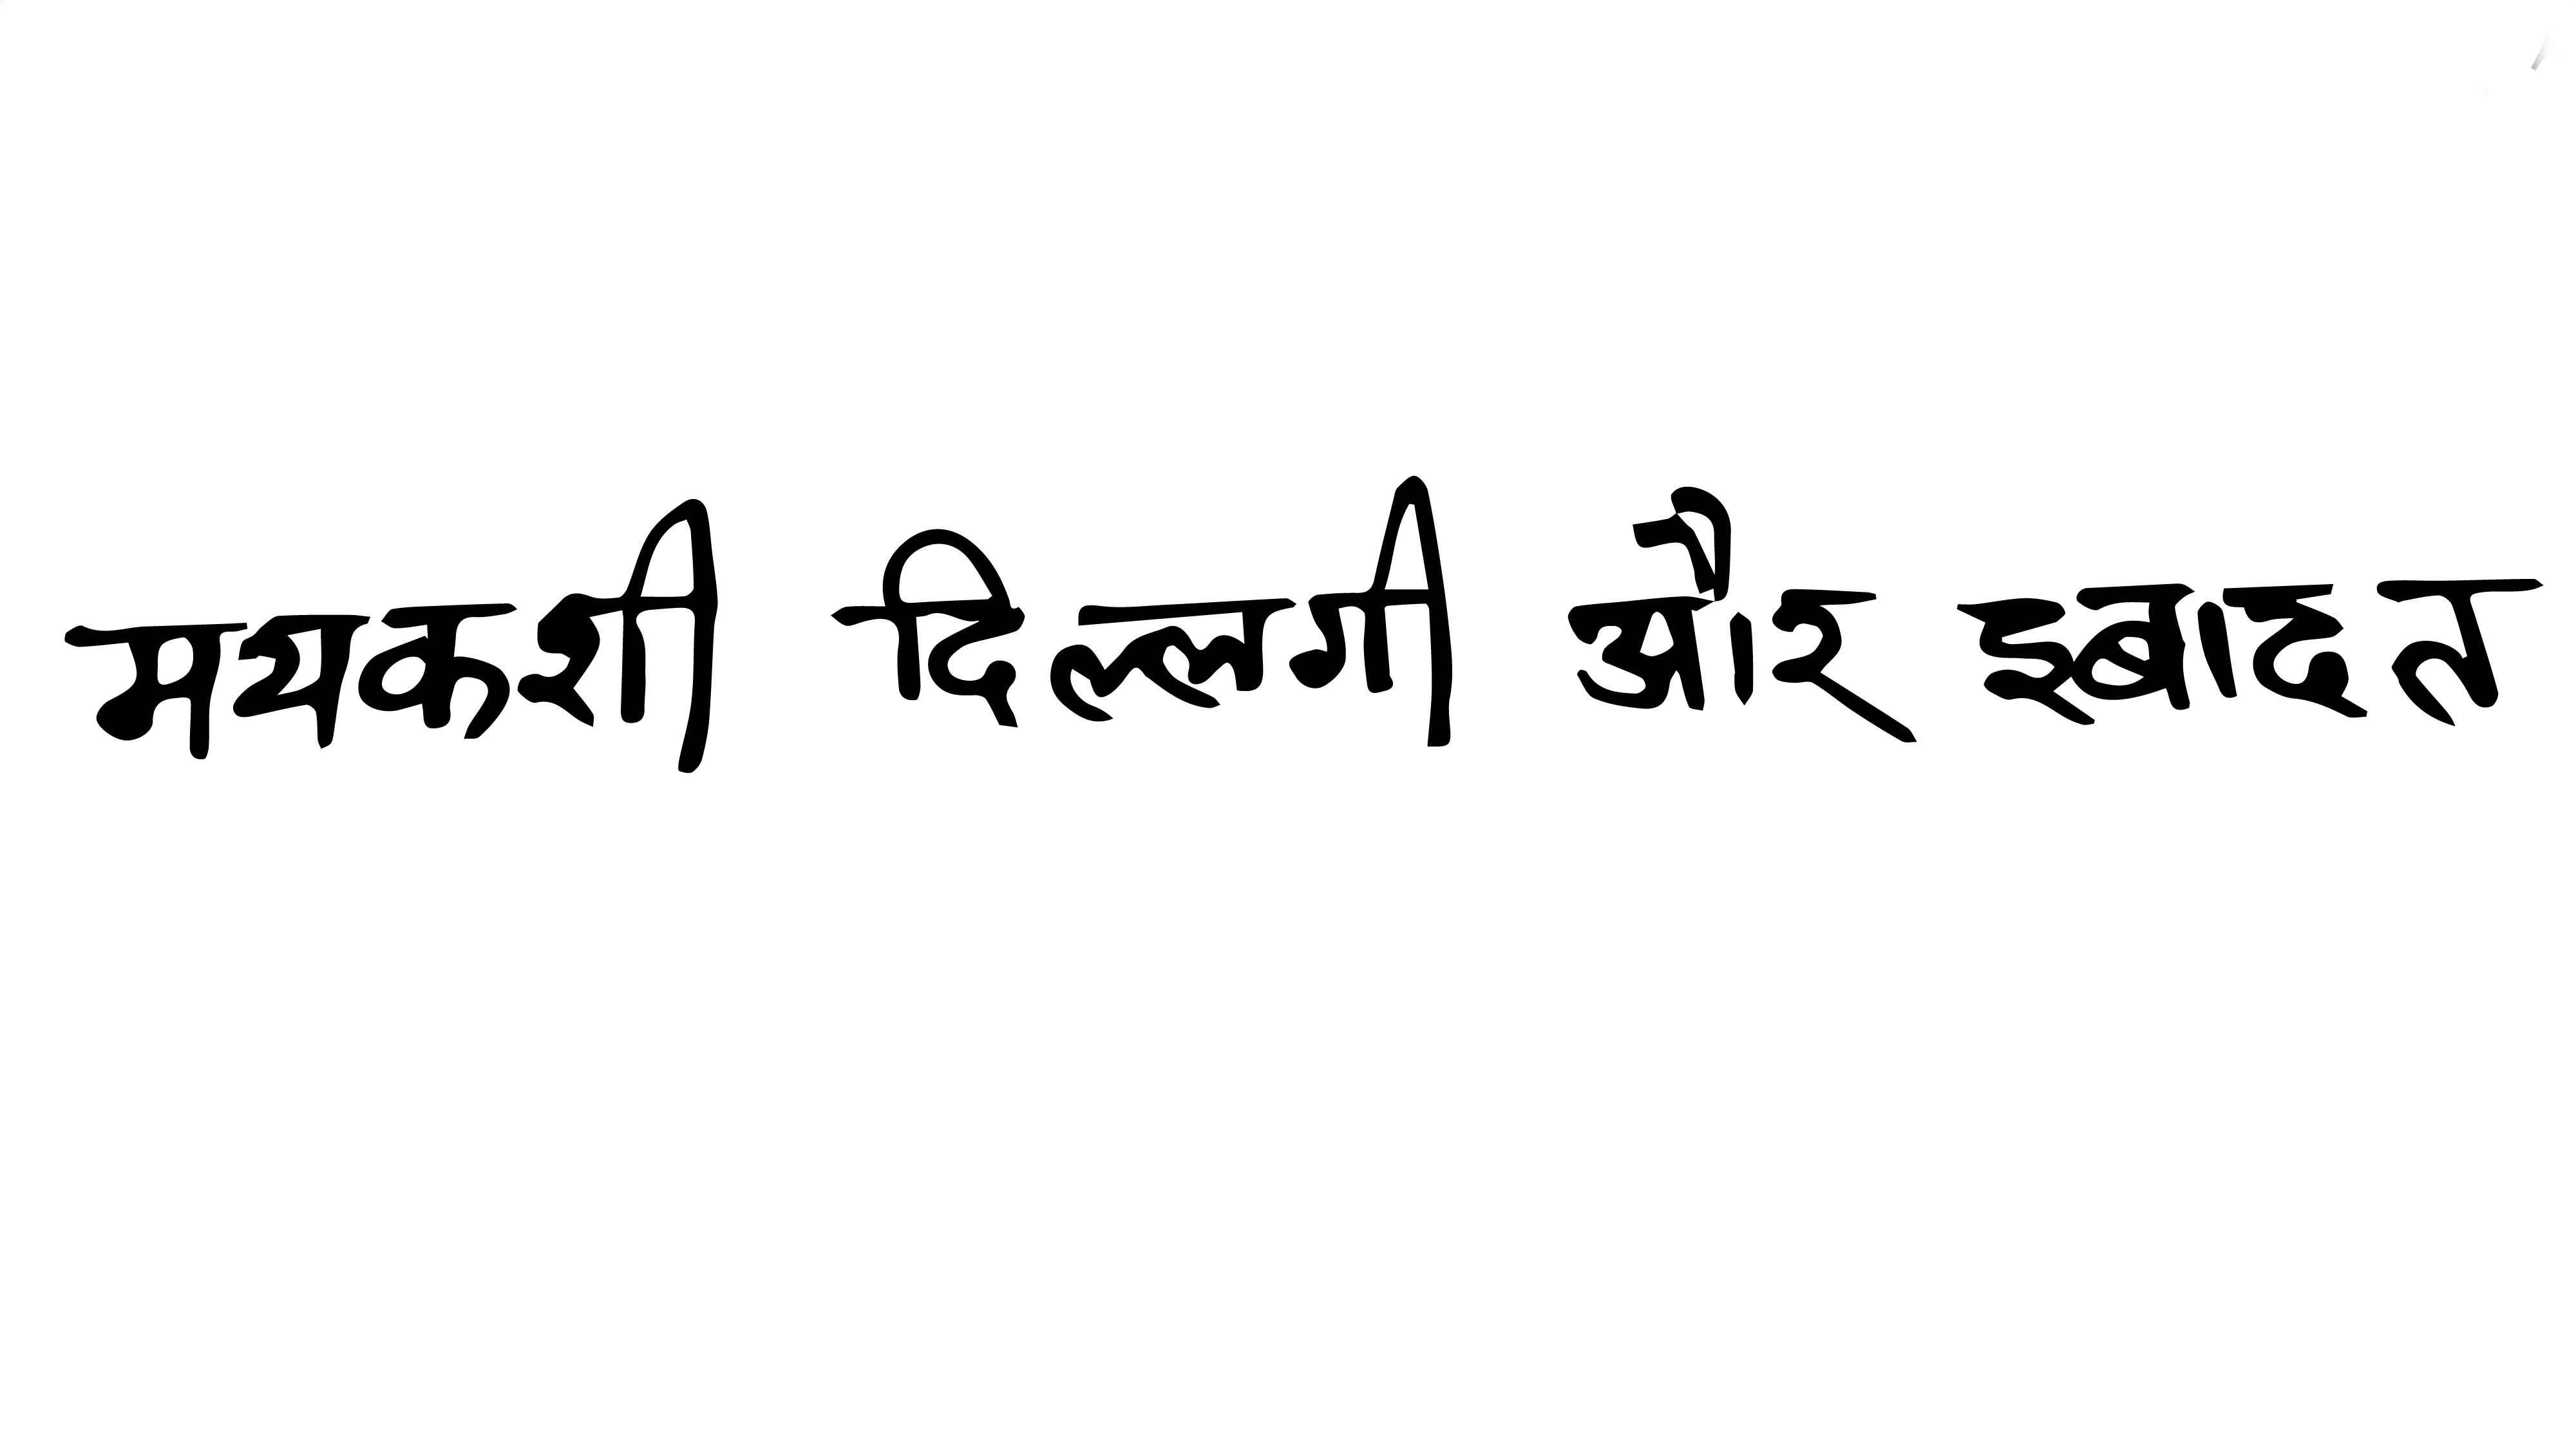 मयकशी दिल्लगी और इबादत